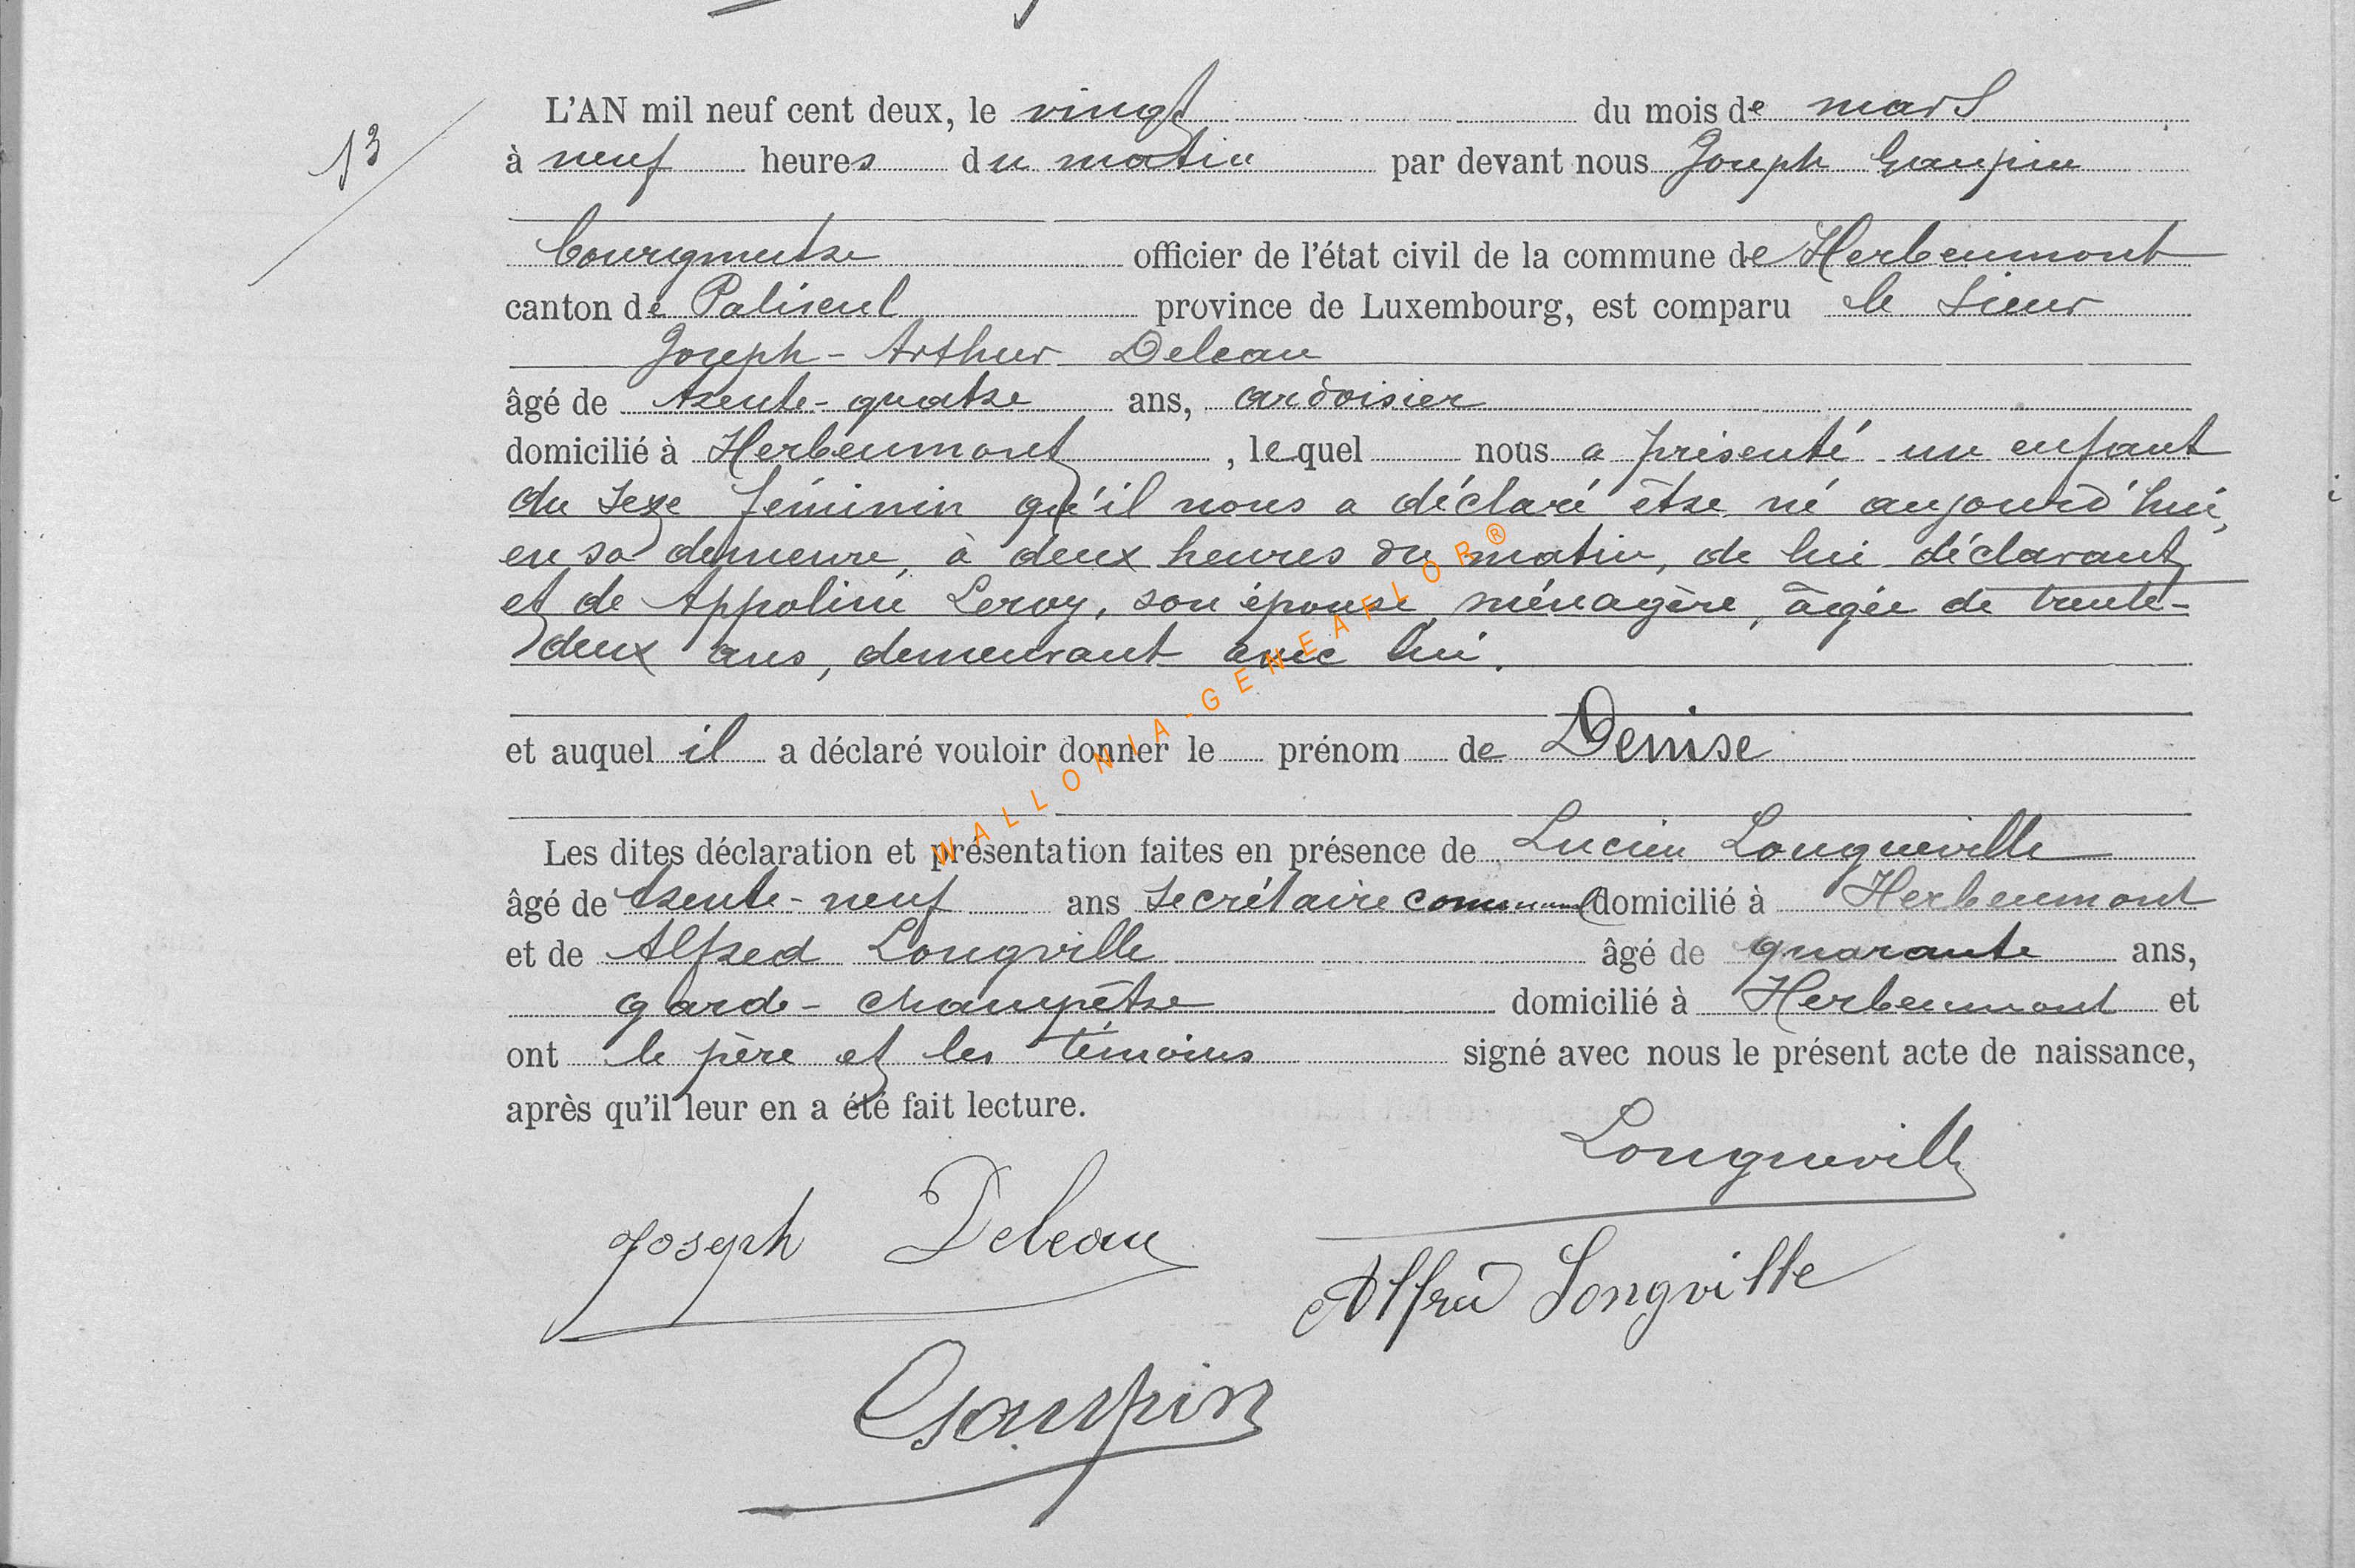 L'AN mil neuf cent deux, le vingt du mois de mars
13
à neuf heures du matin par devant nous Joseph Gaupin
Bourgmestre officier de l'état civil de la commune de Herbeumont
canton de Paliseul province de Luxembourg, est comparu le sieur
Joseph-Arthur Deleau
âgé de trente-quatre ans, ardoisier
domicilié à Herbeumont, lequel nous a présenté un enfant
du sexe féminin qu'il nous a déclaré être né aujourd'hui,
en sa demeure, à deux heures du matin, de lui déclarant
et de Appoline Leroy, son épouse, ménagère, âgée de trente-
deux ans, demeurant avec lui.
et auquel il a déclaré vouloir donner le prénom de Denise
Les dites déclaration et présentation faites en présence de Lucien Longueville
âgé de trente-neuf ans secrétaire communal domicilié à Herbeumont
et de Alfred Longville âgé de quarante ans,
garde-champêtre domicilié à Herbeumont et
ont le père et les témoins signé avec nous le présent acte de naissance,
après qu'il leur en a été fait lecture.
Longueville
Joseph Deleau
Alfred Longville
Gaupin
WALLONIA-GENEAFLOR®